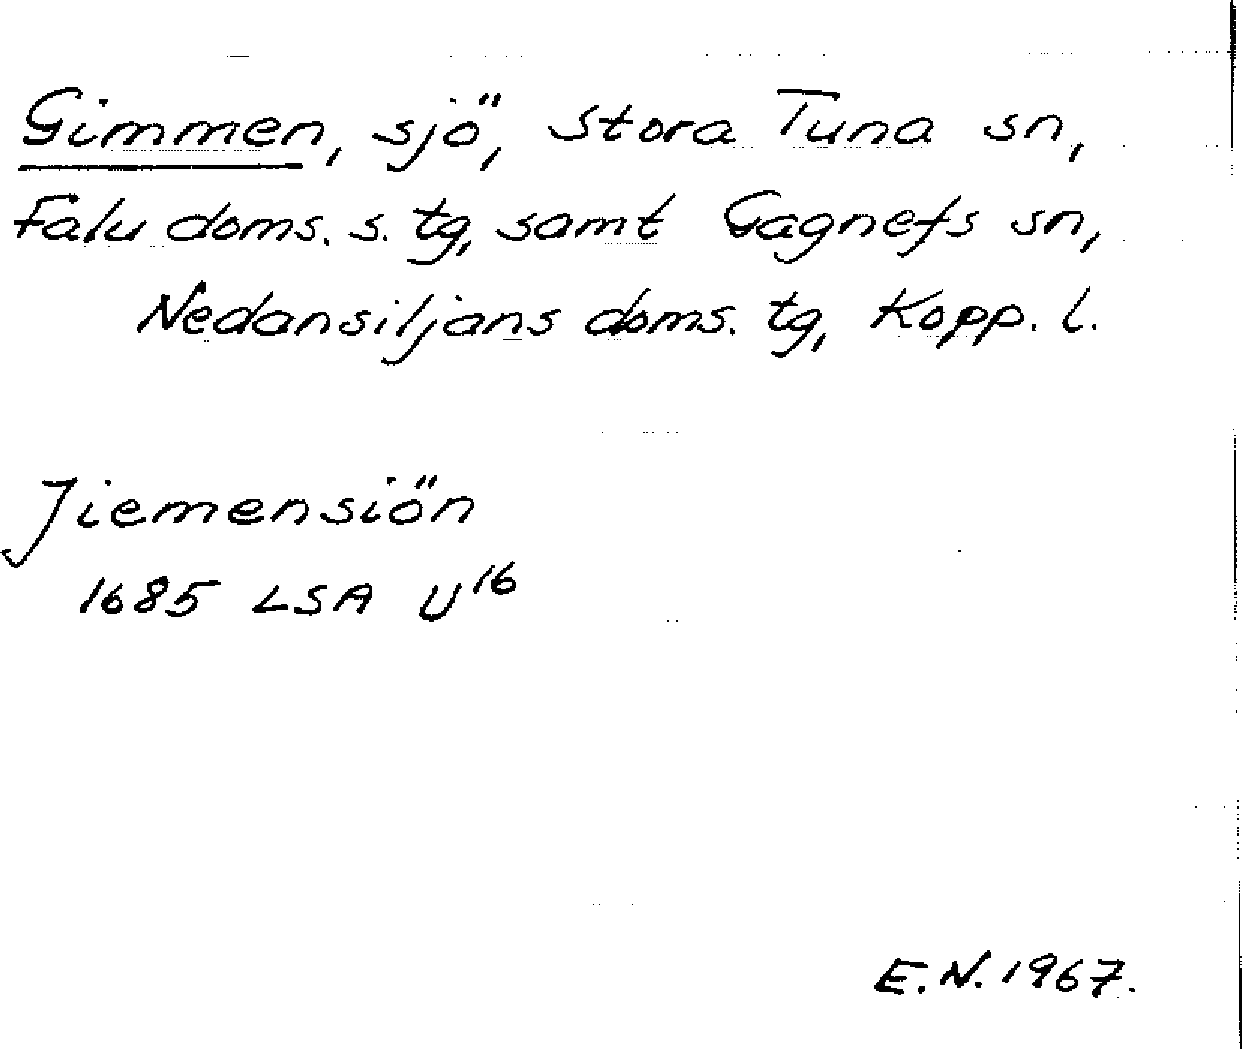 Gimmen, sjö, Stora Tuna sn,
Falu doms. s. tg, samt Gagnefs sn,
Nedansiljans doms. tg, Kopp. l.
Jiemensiön
1685 LSA U16
E.N. 1967.